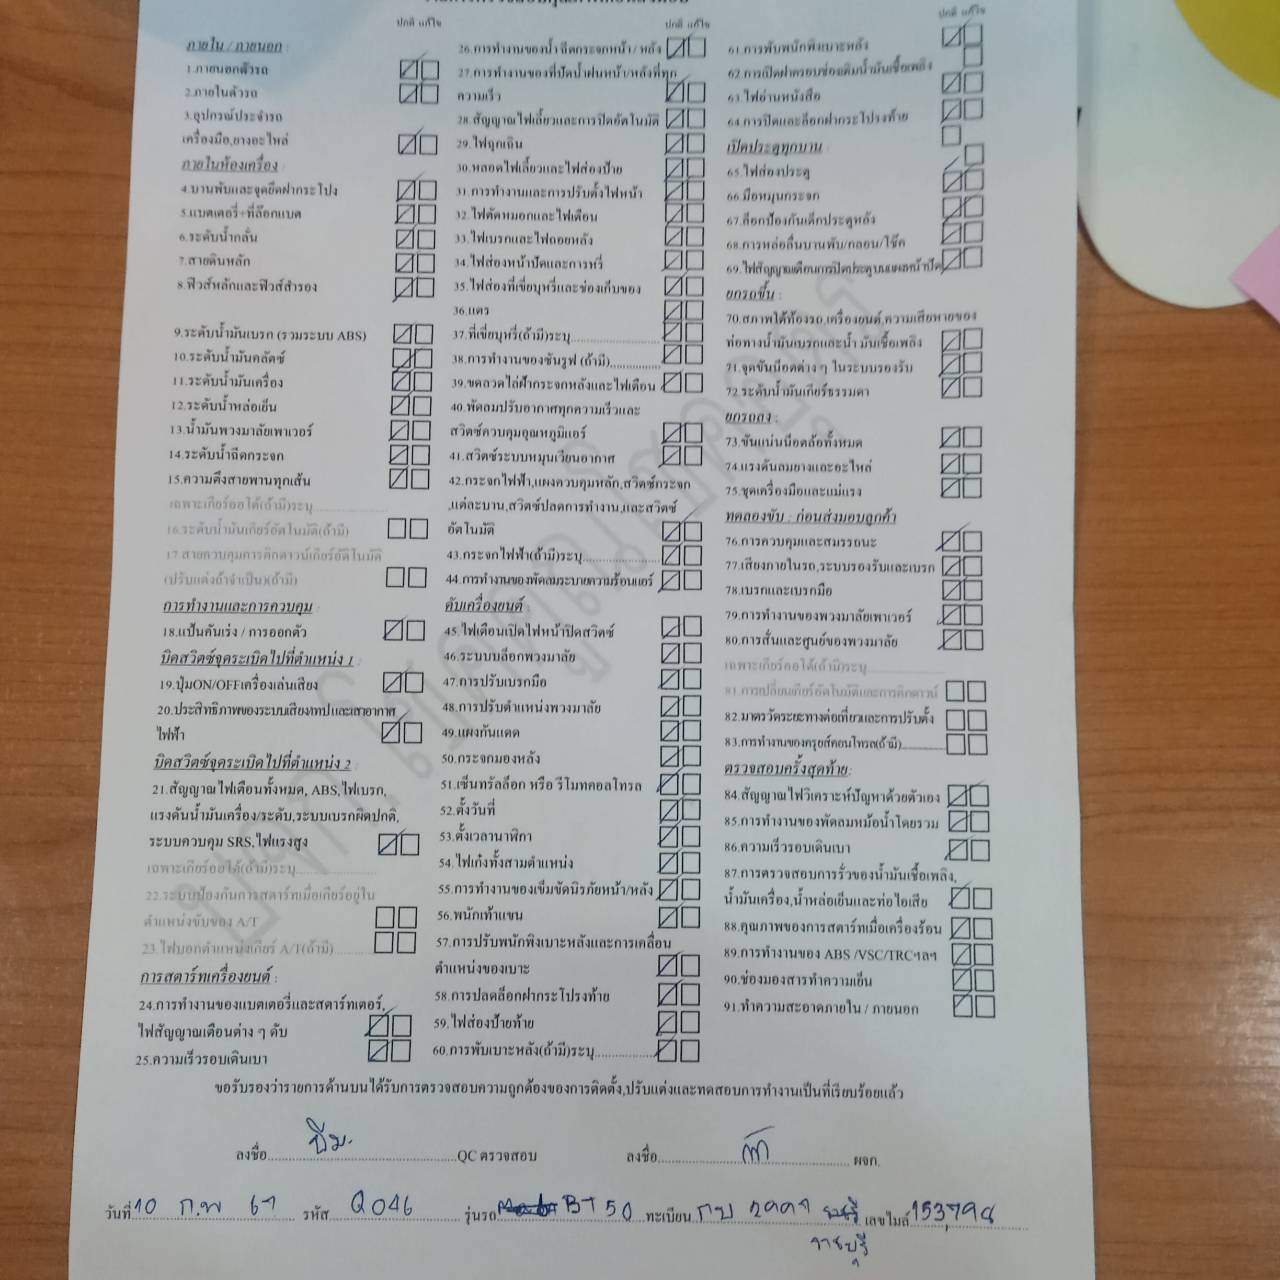 ปกติ แก้ไข
ภายใน / ภายนอก :
1.ภายนอกตัวรถ
2.ภายในตัวรถ
3.อุปกรณ์ประจำรถ
เครื่องมือ,ยางอะไหล่
ภายในห้องเครื่อง
4.บานพับและจุดยึดฝากระโปรง
5.แบตเตอรี่+ที่ล็อกแบต
6.ระดับน้ำกลั่น
7.สายดินหลัก
8.ฟิวส์หลักและฟิวส์สำรอง
9.ระดับน้ำมันเบรก (รวมระบบ ABS)
10.ระดับน้ำมันคลัตช์
11.ระดับน้ำมันเครื่อง
12.ระดับน้ำหล่อเย็น
13.น้ำมันพวงมาลัยเพาเวอร์
14.ระดับน้ำฉีดกระจก
15.ความตึงสายพานทุกเส้น
เฉพาะเกียร์ออโต้(ถ้ามี)ระบุ
16.ระดับน้ำมันเกียร์อัตโนมัติ(ถ้ามี)
17.สายควบคุมการคิกดาวน์เกียร์อัติโนมัติ
(ปรับแต่งถ้าจำเป็น)(ถ้ามี)
การทำงานและการควบคุม :
18.แป้นคันเร่ง / การออกตัว
บิดสวิตซ์จุดระเบิดไปที่ตำแหน่ง 1 :
19.ปุ่มON/OFFเครื่องเล่นเสียง
20.ประสิทธิภาพของระบบเสียง/เทปและเสาอากาศ
ไฟฟ้า
บิดสวิตซ์จุดระเบิดไปที่ตำแหน่ง 2 :
21.สัญญาณไฟเตือนทั้งหมด, ABS,ไฟเบรก,
แรงดันน้ำมันเครื่อง/ระดับ,ระบบเบรกผิดปกติ,
ระบบควบคุม SRS,ไฟแรงสูง
เฉพาะเกียร์ออโต้(ถ้ามี)ระบุ
22.ระบบป้องกันการสตาร์ทเมื่อเกียร์อยู่ใน
ตำแหน่งขับของ A/T
23.ไฟบอกตำแหน่งเกียร์ A/T(ถ้ามี)
การสตาร์ทเครื่องยนต์ :
24.การทำงานของแบตเตอรี่และสตาร์ทเตอร์,
ไฟสัญญาณเตือนต่าง ๆ ดับ
25.ความเร็วรอบเดินเบา
ปกติ แก้ไข
26.การทำงานของน้ำ ฉีดกระจกหน้า / หลัง
27.การทำงานของที่ปัดน้ำฝนหน้า/หลังที่ทุก
ความเร็ว
28. สัญญาณไฟเลี้ยวและการปิดอัตโนมัติ
29.ไฟฉุกเฉิน
30.หลอดไฟเลี้ยวและไฟส่องป้าย
31.การทำงานและการปรับตั้งไฟหน้า
32.ไฟตัดหมอกและไฟเตือน
33.ไฟเบรกและไฟถอยหลัง
34.ไฟส่องหน้าปัดและการหรี่
35.ไฟส่องที่เขี่ยบุหรี่และช่องเก็บของ
36.แตร
37.ที่เขี่ยบุหรี่(ถ้ามี)ระบุ
38.การทำงานของซันรูฟ (ถ้ามี)
39.ขดลวดไล่ฝ้ากระจกหลังและไฟเตือน
40.พัดลมปรับอากาศทุกความเร็วและ
สวิตซ์ควบคุมอุณหภูมิแอร์
41.สวิตซ์ระบบหมุนเวียนอากาศ
42.กระจกไฟฟ้า,แผงควบคุมหลัก,สวิตซ์กระจก
,แต่ละบาน,สวิตซ์ปลดการทำงาน,และสวิตซ์
อัตโนมัติ
43.กระจกไฟฟ้า(ถ้ามี)ระบุ
44.การทำงานของพัดลมระบายความร้อนแอร์
ดับเครื่องยนต์ :
45.ไฟเตือนเปิดไฟหน้าปิดสวิตซ์
46.ระบบบล็อกพวงมาลัย
47.การปรับเบรกมือ
48.การปรับตำแหน่งพวงมาลัย
49.แผงกันแดด
50.กระจกมองหลัง
51.เซ็นทรัลล็อก หรือ รีโมทคอลโทรล
52.ตั้งวันที่
53.ตั้งเวลานาฬิกา
54.ไฟเก๋งทั้งสามตำแหน่ง
55.การทำงานของเข็มขัดนิรภัยหน้า/หลัง
56.พนักเท้าแขน
57.การปรับพนักพิงเบาะหลังและการเคลื่อน
ตำแหน่งของเบาะ
58.การปลดล็อกฝากระโปรงท้าย
59.ไฟส่องป้ายท้าย
60.การพับเบาะหลัง(ถ้ามี)ระบุ
ปกติ แก้ไข
61.การพับพนักพิงเบาะหลัง
62.การเปิดฝาครอบช่องเติมน้ำมันเชื้อเพลิง
63.ไฟอ่านหนังสือ
64.การปิดและล็อกฝากระโปรงท้าย
เปิดประตูทุกบาน :
65.ไฟส่องประตู
66.มือหมุนกระจก
67.ล็อกป้องกันเด็กประตูหลัง
68.การหล่อลื่นบานพับ/กลอน/โช๊ค
69.ไฟสัญญาณเตือนการปิดประตูบนแผงหน้าปัด
ยกรถขึ้น :
70.สภาพใต้ท้องรถ,เครื่องยนต์,ความเสียหายของ
ท่อทางน้ำมันเบรกและน้ำ มันเชื้อเพลิง
71.จุดขันน็อตต่าง ๆ ในระบบรองรับ
72.ระดับน้ำมันเกียร์ธรรมดา
ยกรถลง :
73.ขันแน่นน็อตล้อทั้งหมด
74.แรงดันลมยางและอะไหล่
75.ชุดเครื่องมือและแม่แรง
ทดลองขับ : ก่อนส่งมอบลูกค้า
76.การควบคุมและสมรรถนะ
77.เสียงภายในรถ,ระบบรองรับและเบรก
78.เบรกและเบรกมือ
79.การทำงานของพวงมาลัยเพาเวอร์
80.การสั่นและศูนย์ของพวงมาลัย
เฉพาะเกียร์ออโต้(ถ้ามี)ระบุ
81.การเปลี่ยนเกียร์อัตโนมัติและการคิกดาวน์
82.มาตรวัดระยะทางต่อเที่ยวและการปรับตั้ง
83.การทำงานของครูยส์คอนโทรล(ถ้ามี)
ตรวจสอบครั้งสุดท้าย:
84.สัญญาณไฟวิเคราะห์ปัญหาด้วยตัวเอง
85.การทำงานของพัดลมหม้อน้ำโดยรวม
86.ความเร็วรอบเดินเบา
87.การตรวจสอบการรั่วของน้ำมันเชื้อเพลิง,
น้ำมันเครื่อง,น้ำหล่อเย็นและท่อไอเสีย
88.คุณภาพของการสตาร์ทเมื่อเครื่องร้อน
89.การทำงานของ ABS /VSC/TRCฯลฯ
90.ช่องมองสารทำความเย็น
91.ทำความสะอาดภายใน / ภายนอก
ขอรับรองว่ารายการด้านบนได้รับการตรวจสอบความถูกต้องของการติดตั้ง,ปรับแต่งและทดสอบการทำงานเป็นที่เรียบร้อยแล้ว
ลงชื่อ บีม. QC ตรวจสอบ ลงชื่อ ผจก.
วันที่ 10 ก.พ 67 รหัส Q046 รุ่นรถ BT 50 ทะเบียน เลขไมล์ 153,798
ราชบุรี